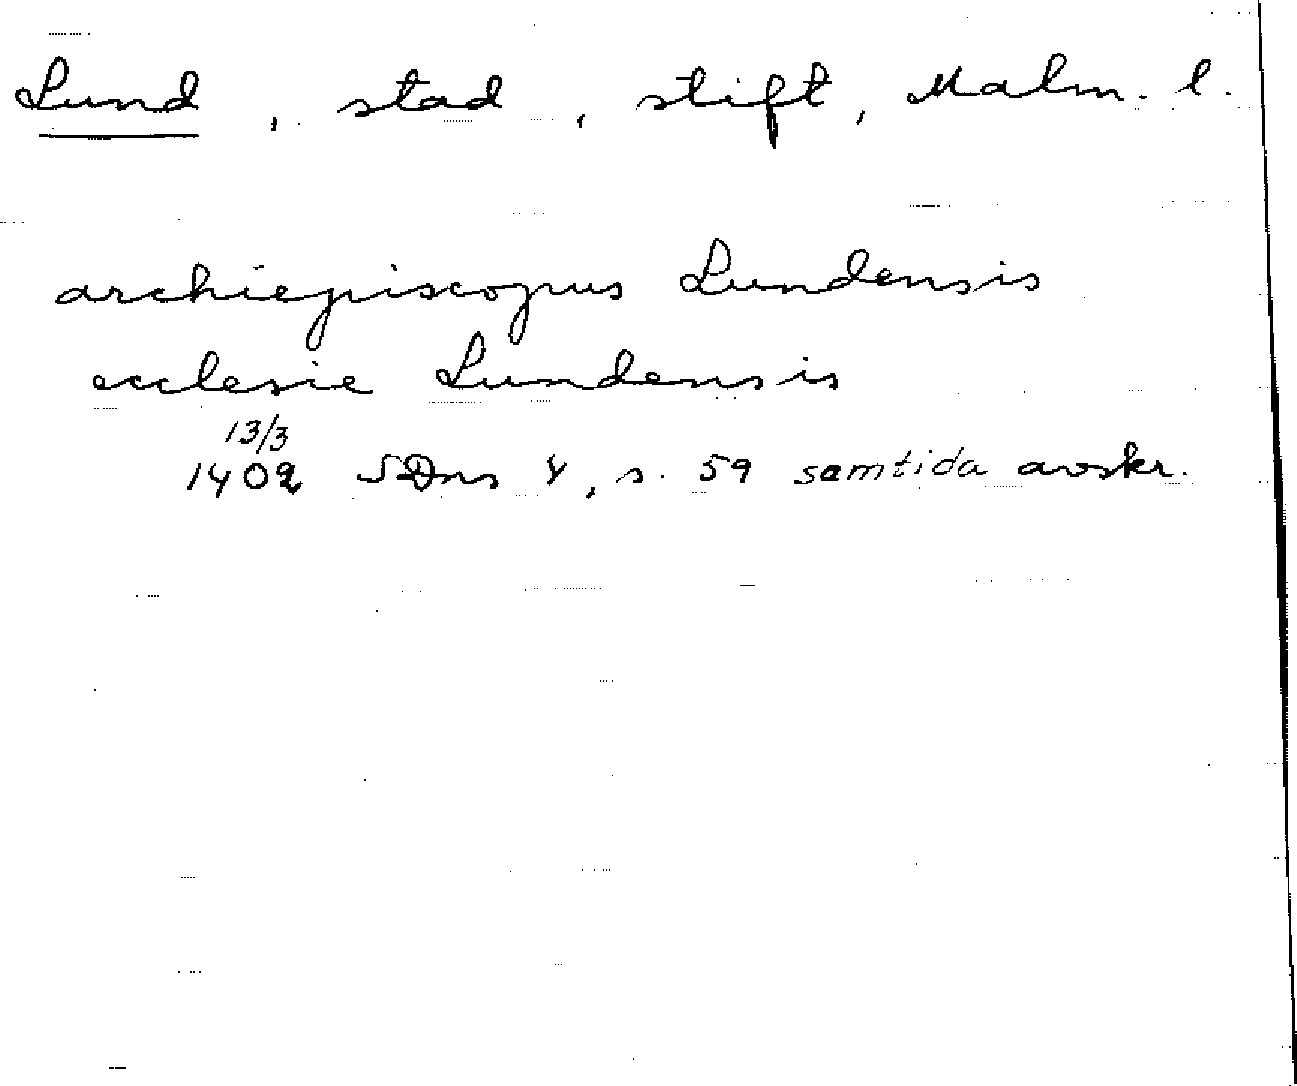 Lund, stad, stift, Malm. l.
archiepiscopus Lundensis
ecclesie Lundensis
13/3
1402 SDns 1, s. 59 samtida avskr.